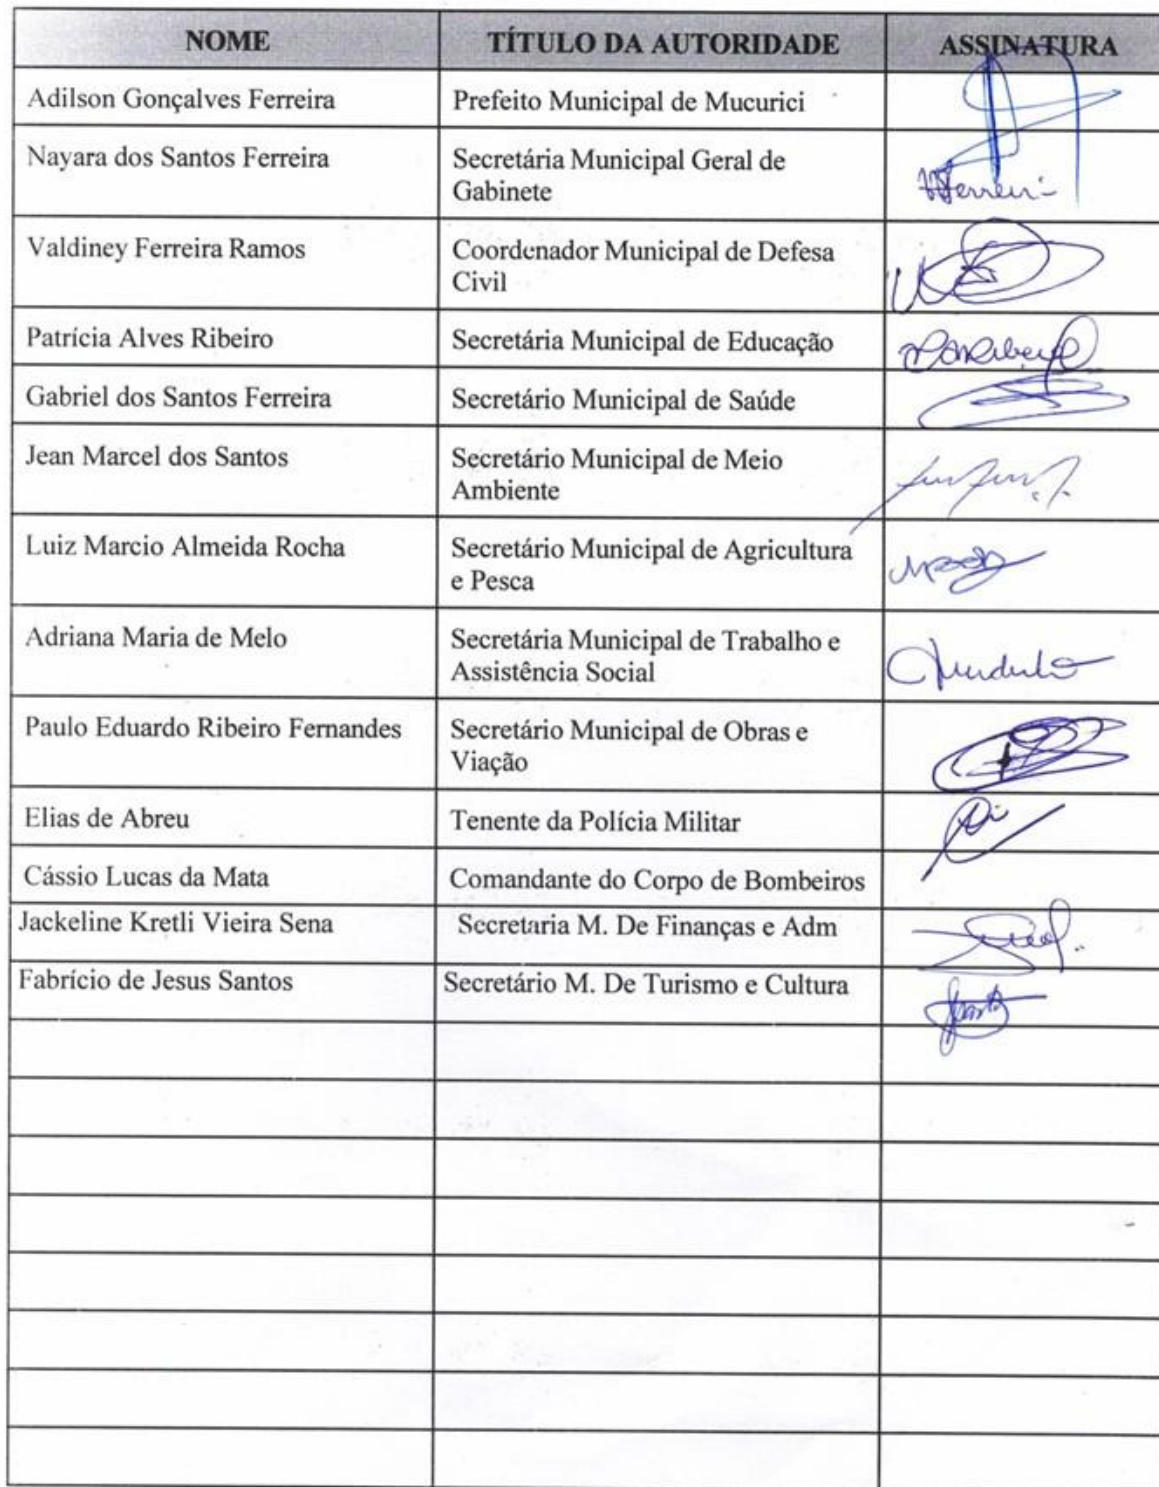 NOME TÍTULO DA AUTORIDADE ASSINATURA
Adilson Gonçalves Ferreira Prefeito Municipal de Mucurici
Nayara dos Santos Ferreira Secretária Municipal Geral de
Gabinete
Valdiney Ferreira Ramos Coordenador Municipal de Defesa
Civil
Patrícia Alves Ribeiro Secretária Municipal de Educação
Gabriel dos Santos Ferreira Secretário Municipal de Saúde
Jean Marcel dos Santos Secretário Municipal de Meio
Ambiente
Luiz Marcio Almeida Rocha Secretário Municipal de Agricultura
e Pesca
Adriana Maria de Melo Secretária Municipal de Trabalho e
Assistência Social
Paulo Eduardo Ribeiro Fernandes Secretário Municipal de Obras e
Viação
Elias de Abreu Tenente da Polícia Militar
Cássio Lucas da Mata Comandante do Corpo de Bombeiros
Jackeline Kretli Vieira Sena Secretaria M. De Finanças e Adm
Fabrício de Jesus Santos Secretário M. De Turismo e Cultura